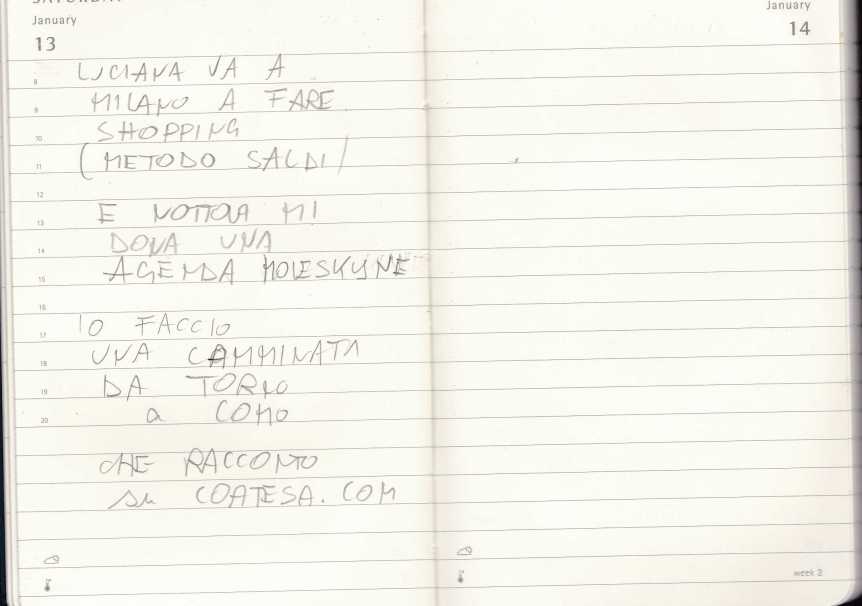 SATURDAY
January
13
8 LUCIANA VA A
9 MILANO A FARE
10 SHOPPING
11 (METODO SALDI)
12
13 E MI
14 DONA UNA
15 AGENDA MOLESKYNE
16
17 IO FACCIO
18 UNA CAMMINATA
19 DA TORNO
20 a COMO
CHE RACCONTO
su COATESA.COM
January
14
week 2